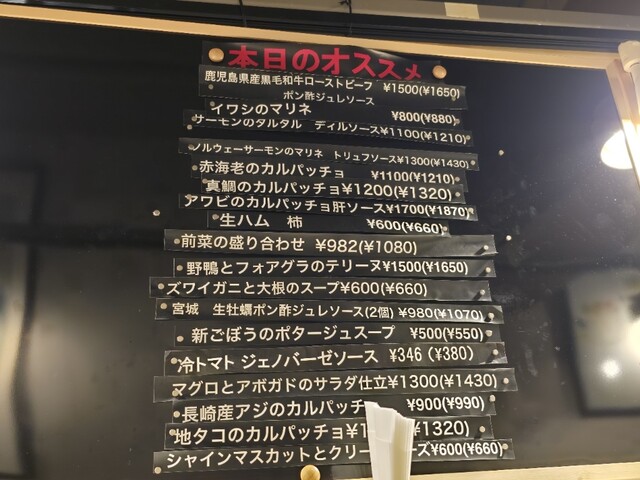 本日のオススメ
鹿児島県産黒毛和牛ローストビーフ ¥1500(¥1650)
ポン酢ジュレソース
イワシのマリネ ¥800(¥880)
サーモンのタルタル ディルソース¥1100(¥1210)
ノルウェーサーモンのマリネ トリュフソース¥1300(¥1430)
赤海老のカルパッチョ ¥1100(¥1210)
真鯛のカルパッチョ¥1200(¥1320)
アワビのカルパッチョ肝ソース¥1700(¥1870)
生ハム 柿 ¥600(¥660)
前菜の盛り合わせ ¥982(¥1080)
野鴨とフォアグラのテリーヌ¥1500(¥1650)
ズワイガニと大根のスープ¥600(¥660)
宮城 生牡蠣ポン酢ジュレソース(2個) ¥980(¥1070)
新ごぼうのポタージュスープ ¥500(¥550)
冷トマト ジェノバーゼソース ¥346 (¥380)
マグロとアボガドのサラダ仕立¥1300(¥1430)
長崎産アジのカルパッチ ¥900(¥990)
地タコのカルパッチョ¥1 ¥1320)
シャインマスカットとクリー ーズ¥600(¥660)